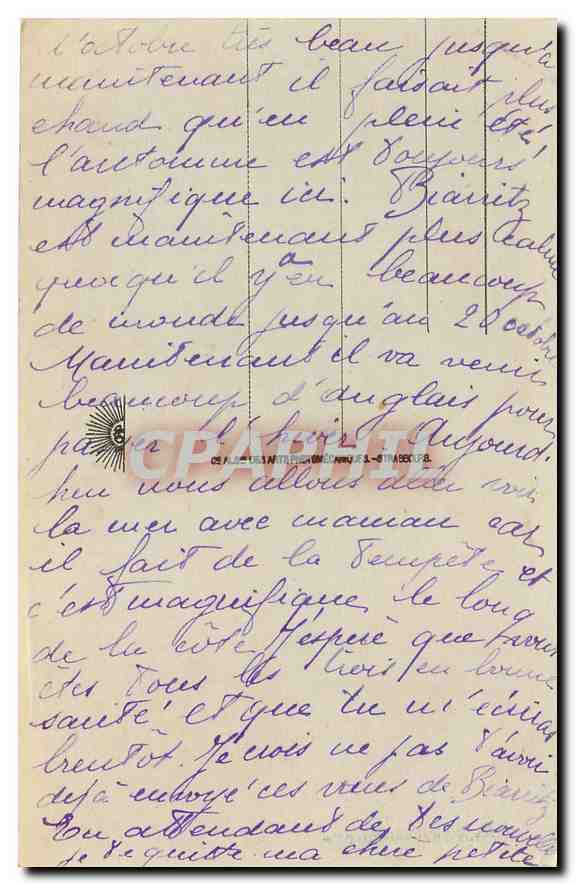 l'octobre très beau jusqu'à
maintenant il faisait plus
chaud qu'en plein été,
l'automne est toujours
magnifique ici. Biarritz
est maintenant plus calme
quoiqu'il y a eu beaucoup
de monde jusqu'au 20 octobre
Maintenant il va venir
beaucoup d'anglais pour
passer l'hiver. Aujourd'
CPAPHIL
CIE ALSNE DES ARTS PHOTOMÉCANIQUES.-STRASBOURG.
hui nous allons aller voir
la mer avec maman car
il fait de la tempête et
c'est magnifique le long
de la côte. J'espère que vous
êtes tous les trois en bonne
santé et que tu m'écriras
bientôt. Je crois ne pas t'avoir
déjà envoyé ces vues de Biarritz
En attendant de tes nouvelles
je te quitte ma chère petite